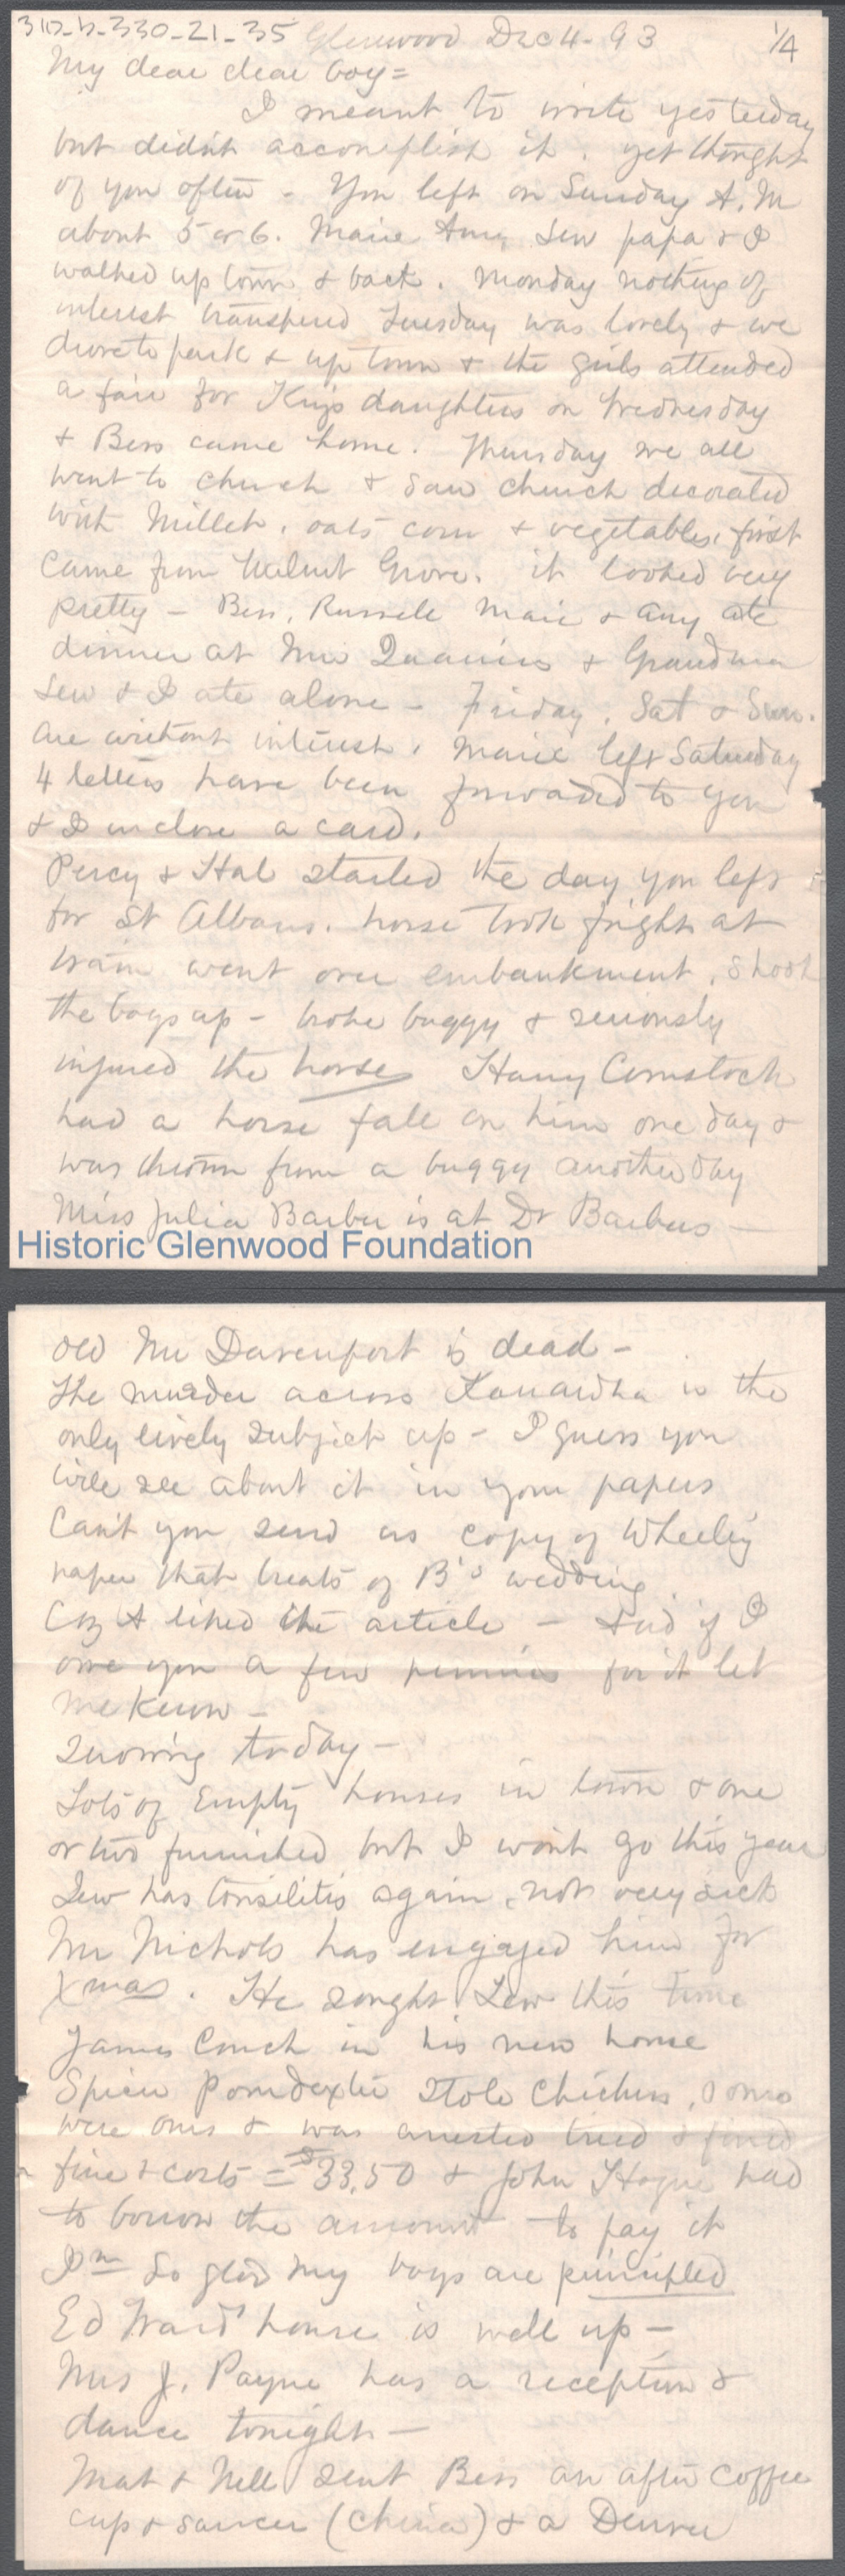 310-b-330-21-35 Glenwood Dec 4 - 93 1/4
My dear dear boy =
I meant to write yesterday
but didn't accomplish it. yet thought
of you often - You left on Sunday A.M
about 5 or 6. Marie Amy Lew papa & I
walked up town & back. Monday nothing of
interest transpired Tuesday was lovely & we
drove to park & up town & the girls attended
a fair for Kings daughters on Wednesday
& Bess came home. Thursday we all
went to church & saw church decorated
with Millet, oats corn & vegetables, first
came from Walnut Grove. it looked very
pretty - Bess, Russell Marie & Amy ate
dinner at Mrs Quarriers & Grandma
Lew & I ate alone - Friday, Sat & Sun.
are without interest. Marie left Saturday
4 letters have been forwaded to you
& I inclose a card.
Percy & Hal started the day you left
for St Albans. horse took fright at
train went over embankment, shook
the boys up - broke buggy & seriously
injured the horse Harry Comstock
had a horse fall on him one day &
was thrown from a buggy another day
Miss Julia Barber is at Dr Barbers -
Historic Glenwood Foundation
old Mr Davenport is dead -
The murder across Kanawha is the
only lively subject up - I guess you
will see about it in your papers
Can't you send us copy of Wheeling
paper that treats of B's wedding
Coz A liked the article - And if I
owe you a few pennies for it let
me know -
Snowing today -
Lots of Empty houses in town & one
or two furnished but I wont go this year
Lew has tonsilitis again, not very sick
Mr Nichols has engaged him for
Xmas. He sought Lew this time
James Couch in his new home
Spicer Pondexter stole chickens, some
were ours & was arrested tried & fined
fine & costs = $33.50 & John Hogue had
to borrow the amount to pay it
I'm so glad my boys are principled
Ed Ward house is well up -
Mrs J. Payne has a reception &
dance tonight -
Mat & Nell sent Bess an after coffee
cup & saucer (china) & a Denver